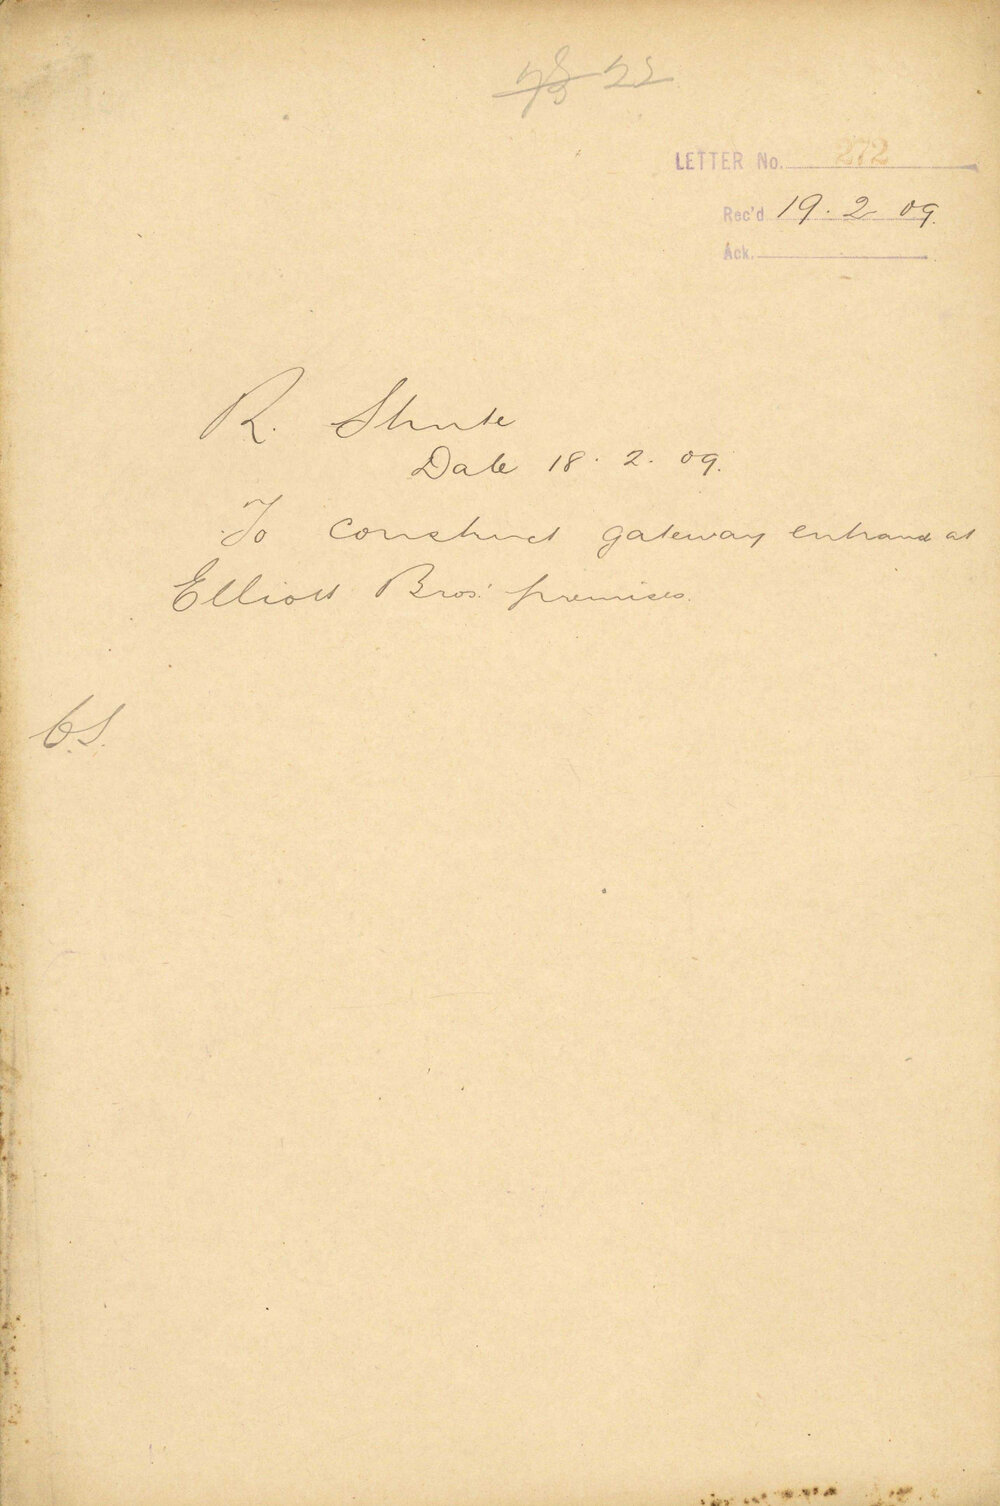 22
LETTER No. 272
Rec'd 19. 2 09.
Ack.
R. Shute
Date 18. 2. 09.
To construct gateway entrance at
Elliott Bros' premises.
C.S.